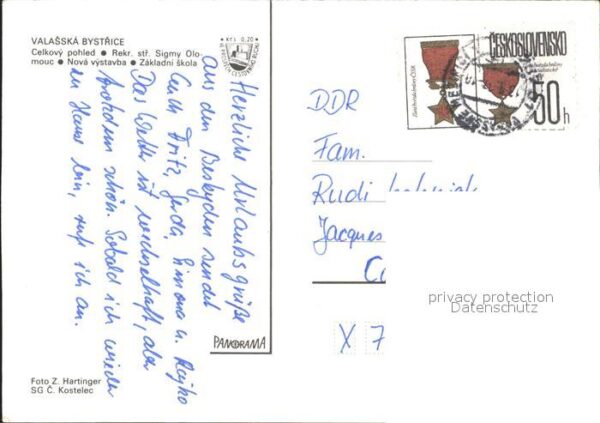 VALAŠSKÁ BYSTŘICE
Celkový pohled • Rekr. stř. Sigmy Olo-
mouc • Nová výstavba • Základní škola
Kčs 0,20
Herzliche Urlaubsgrüße
aus den Beskyden sendet
Euch Fritz, Gerda, Simona u. Rajko
Das Wetter ist wechselhaft, aber
trotzdem schön. Sobald ich wieder
zu Hause bin, ruf ich an.
PANORAMA
Foto Z. Hartinger
SG Č. Kostelec
ČESKOSLOVENSKO
50 h
DDR
Fam.
Rudi
Jacques
X 7
privacy protection
Datenschutz